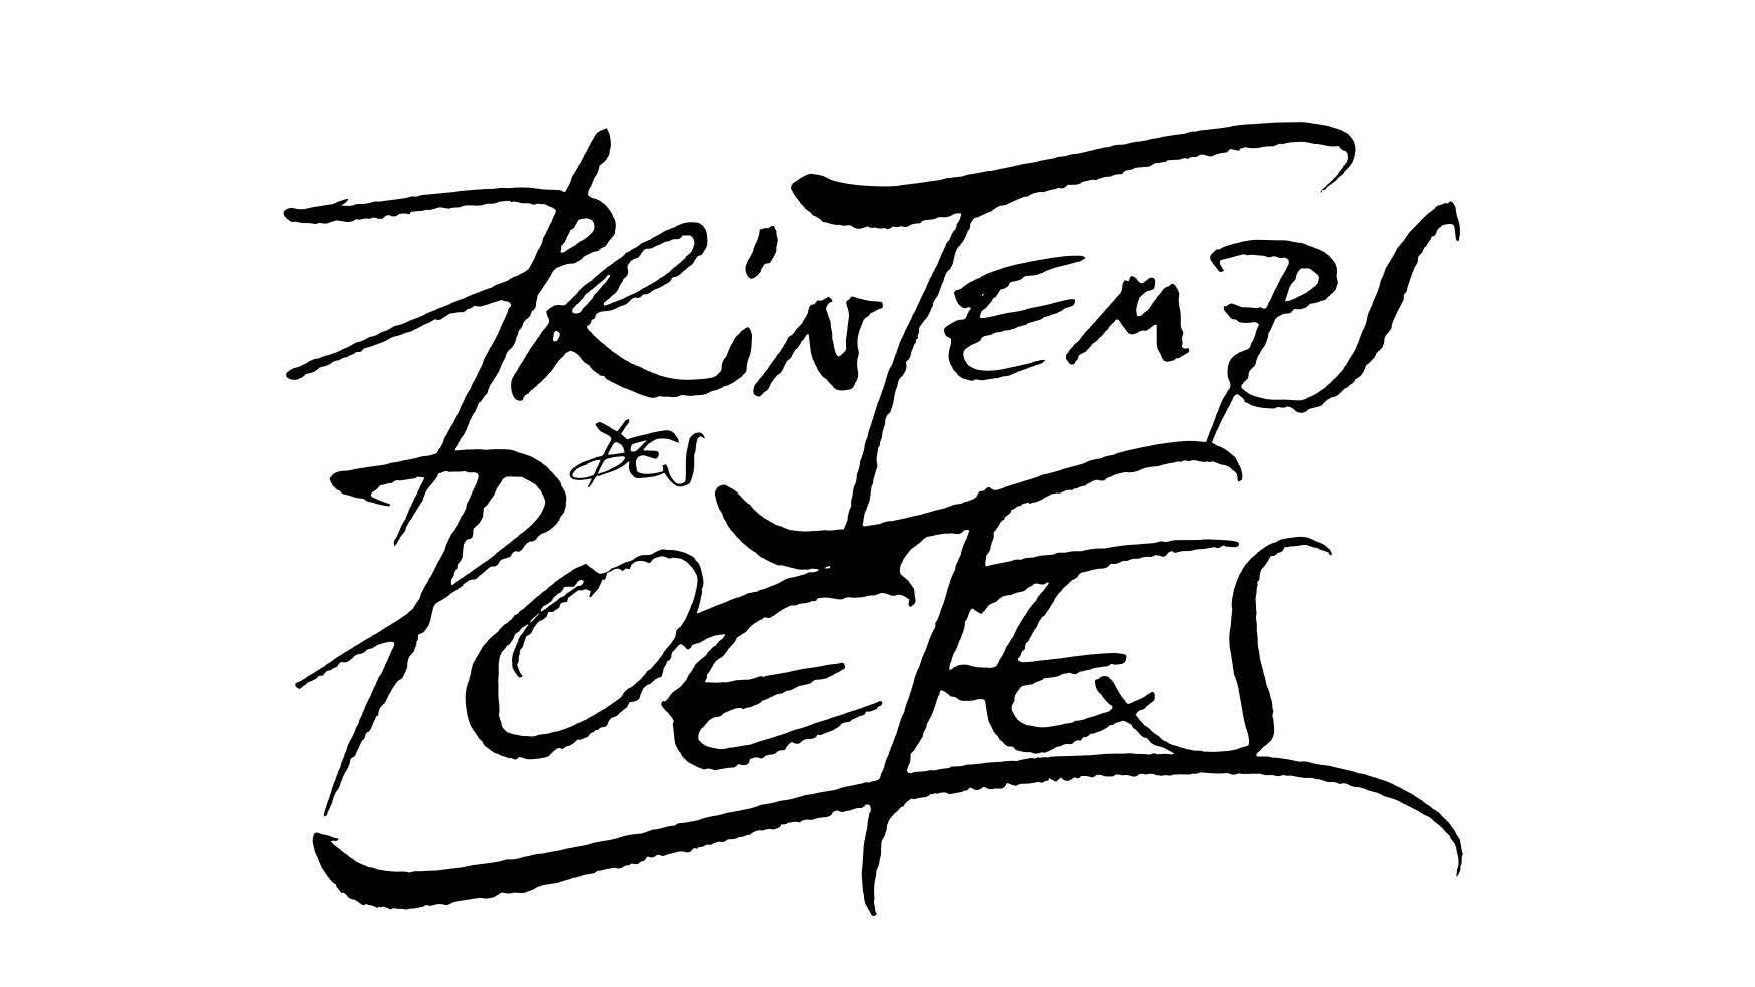 PRiNTEMPS
DES
POETES